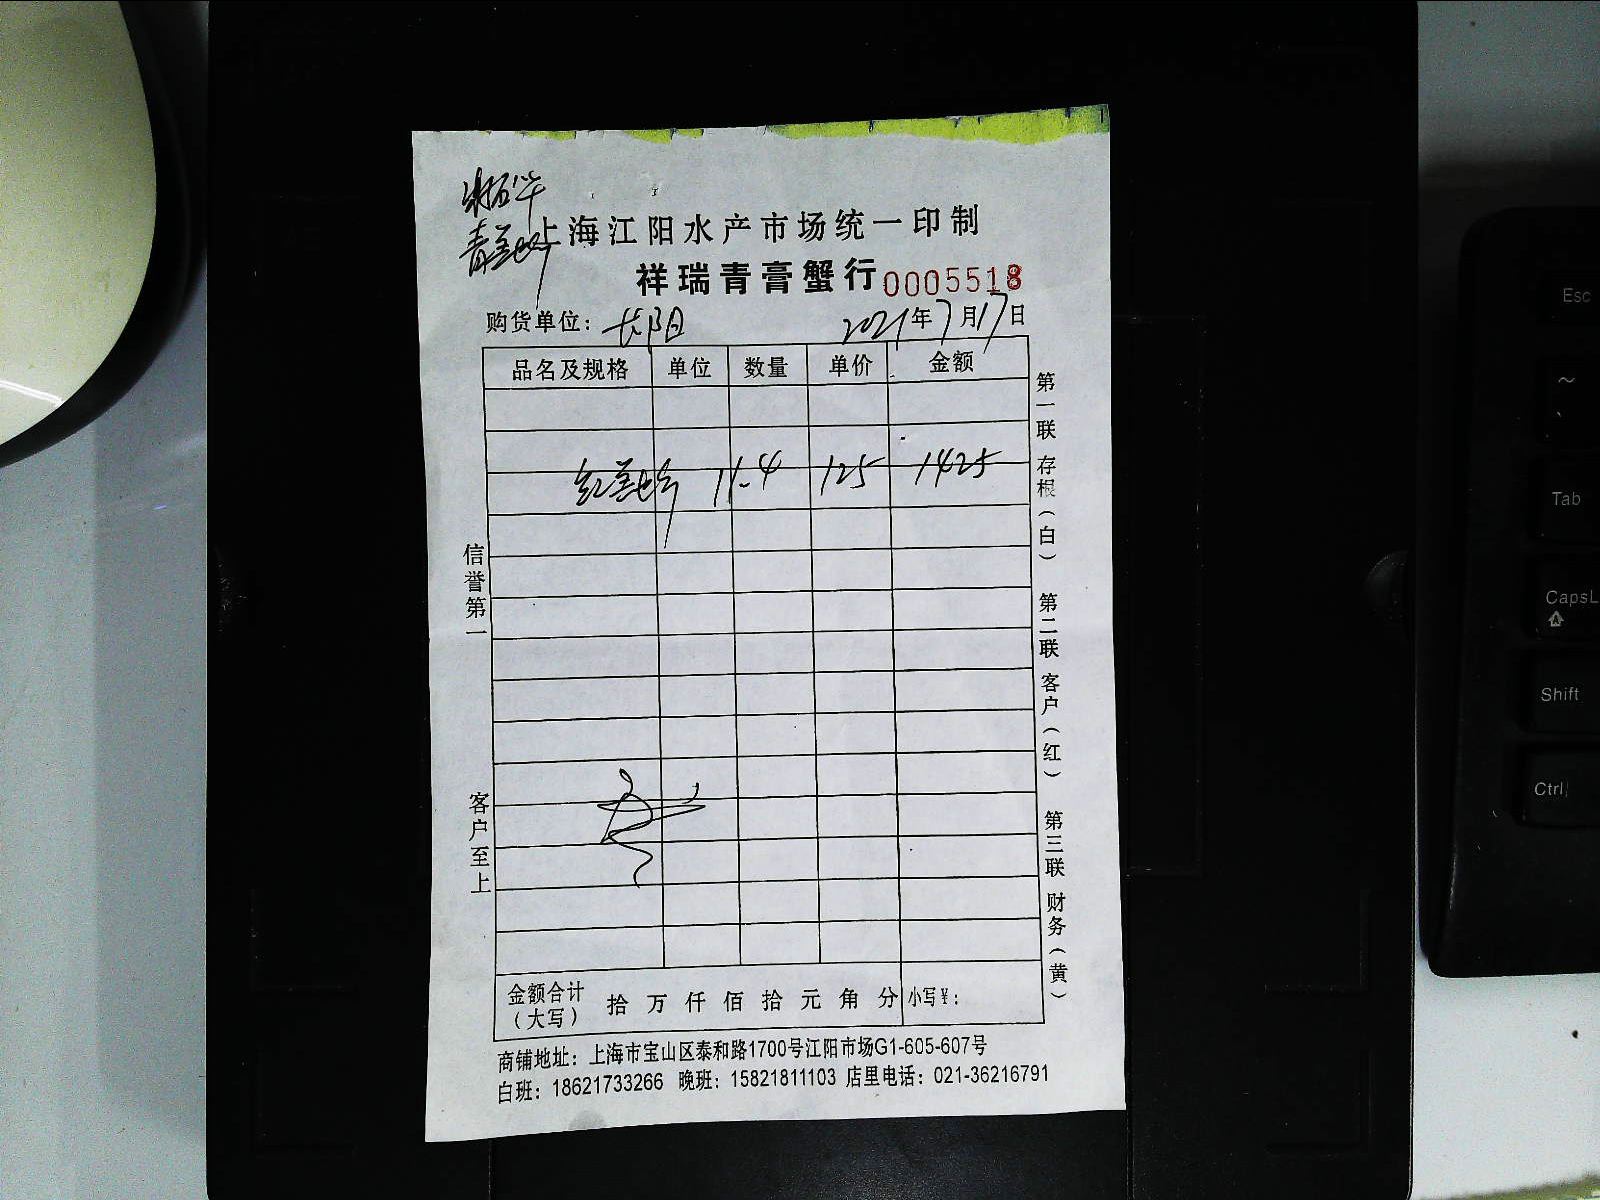 上海江阳水产市场统一印制
祥瑞青膏蟹行 0005518
购货单位： 2021年7月17日
品名及规格 单位 数量 单价 金额
11.4 125 1425
信誉第一
客户至上
第一联 存根（白）
第二联 客户（红）
第三联 财务（黄）
金额合计（大写） 拾 万 仟 佰 拾 元 角 分 小写￥：
商铺地址：上海市宝山区泰和路1700号江阳市场G1-605-607号
白班：18621733266 晚班：15821811103 店里电话：021-36216791
Esc
~
`
Tab
CapsL
Shift
Ctrl